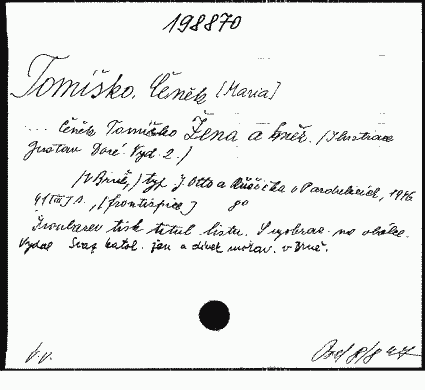 198870
Tomíško, Čeněk [Maria]
... Čeněk Tomíško Žena a kněz. (Ilustrace
Gustav Doré. Vyd. 2.)
(V Brně,) typ. J. Otto a Růžička v Pardubicích, 1946.
41 [III] s., [frontispice] 80
Dvoubarev. tisk titul. listu. S vyobraz. na obálce.
Vydal Svaz katol. žen a dívek morav. v Brně.
V. v.